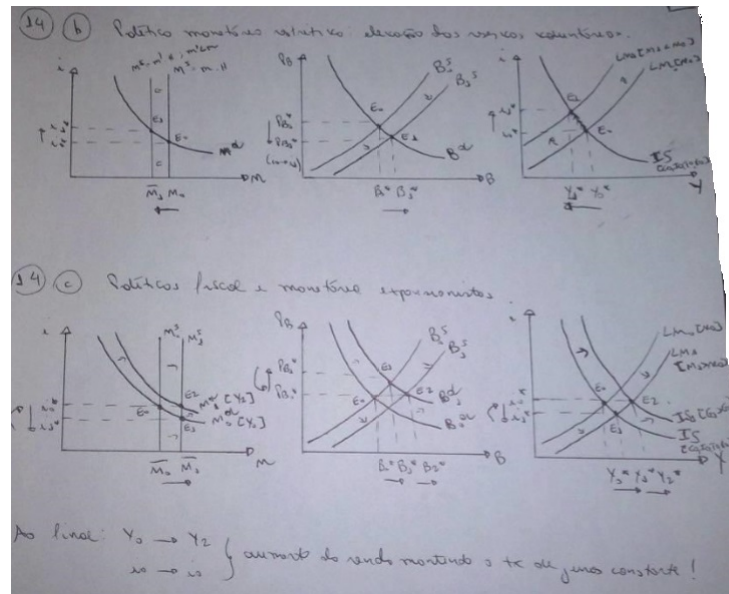 14 b Política monetária restritiva: elevação das reservas voluntárias.
i
E1
E0
M^d
M1 M0
M
P_B
B0^s
B1^s
E0
E1
B^d
B0* B1*
B
i
LM0[M0]
E1
E0
IS
Y1* Y0*
Y
14 c Políticas fiscal e monetária expansionistas
i
M0^s M1^s
E0
E2
M1^d [Y2]
M0^d [Y0]
E1
M0 M1
M
P_B
B0^s
B1^s
E1
E0
E2
B1^d
B0^d
B0* B1* B2*
B
i
LM0[M0]
LM1
E0
E2
E1
IS
Y0* Y1* Y2*
Y
Ao final: Y0 → Y2
i0 → i0
} aumento da renda mantendo a tx de juros constante!